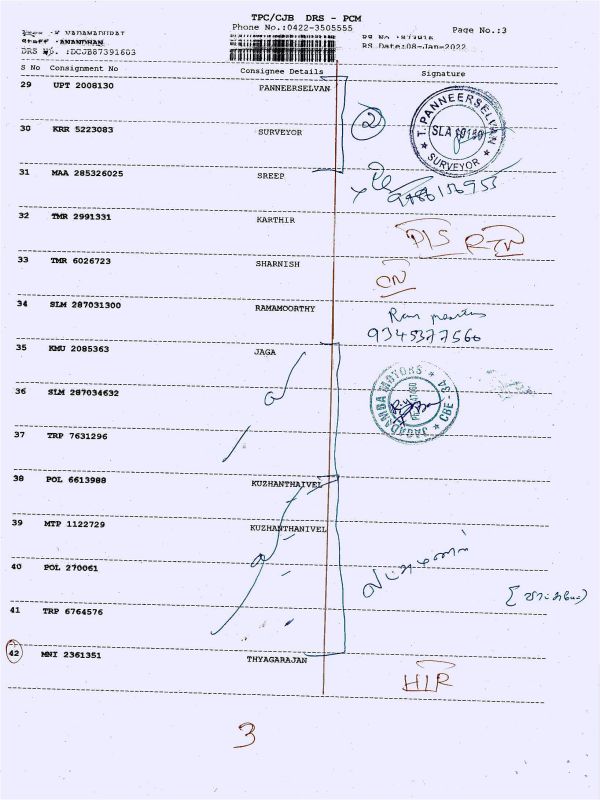 TPC/CJB DRS - PCM
Phone No.:0422-3505555
Page No.:3
Staff :ANANDHAN
DRS No. :DCJB87391603
RS Date:08-Jan-2022
S No Consignment No Consignee Details Signature
29 UPT 2008130 PANNEERSELVAN
T. PANNEERSELVAN
SLA
SURVEYOR
2
30 KRR 5223083 SURVEYOR
31 MAA 285326025 SREEP
32 TMR 2991331 KARTHIR
33 TMR 6026723 SHARNISH
34 SLM 287031300 RAMAMOORTHY
9345377560
35 KMU 2085363 JAGA
JAGADAMBA MOTORS
CBE-
36 SLM 287034632
37 TRP 7631296
38 POL 6613988 KUZHANTHAIVEL
39 MTP 1122729 KUZHANTHANIVEL
40 POL 270061
41 TRP 6764576
42 MNI 2361351 THYAGARAJAN
3